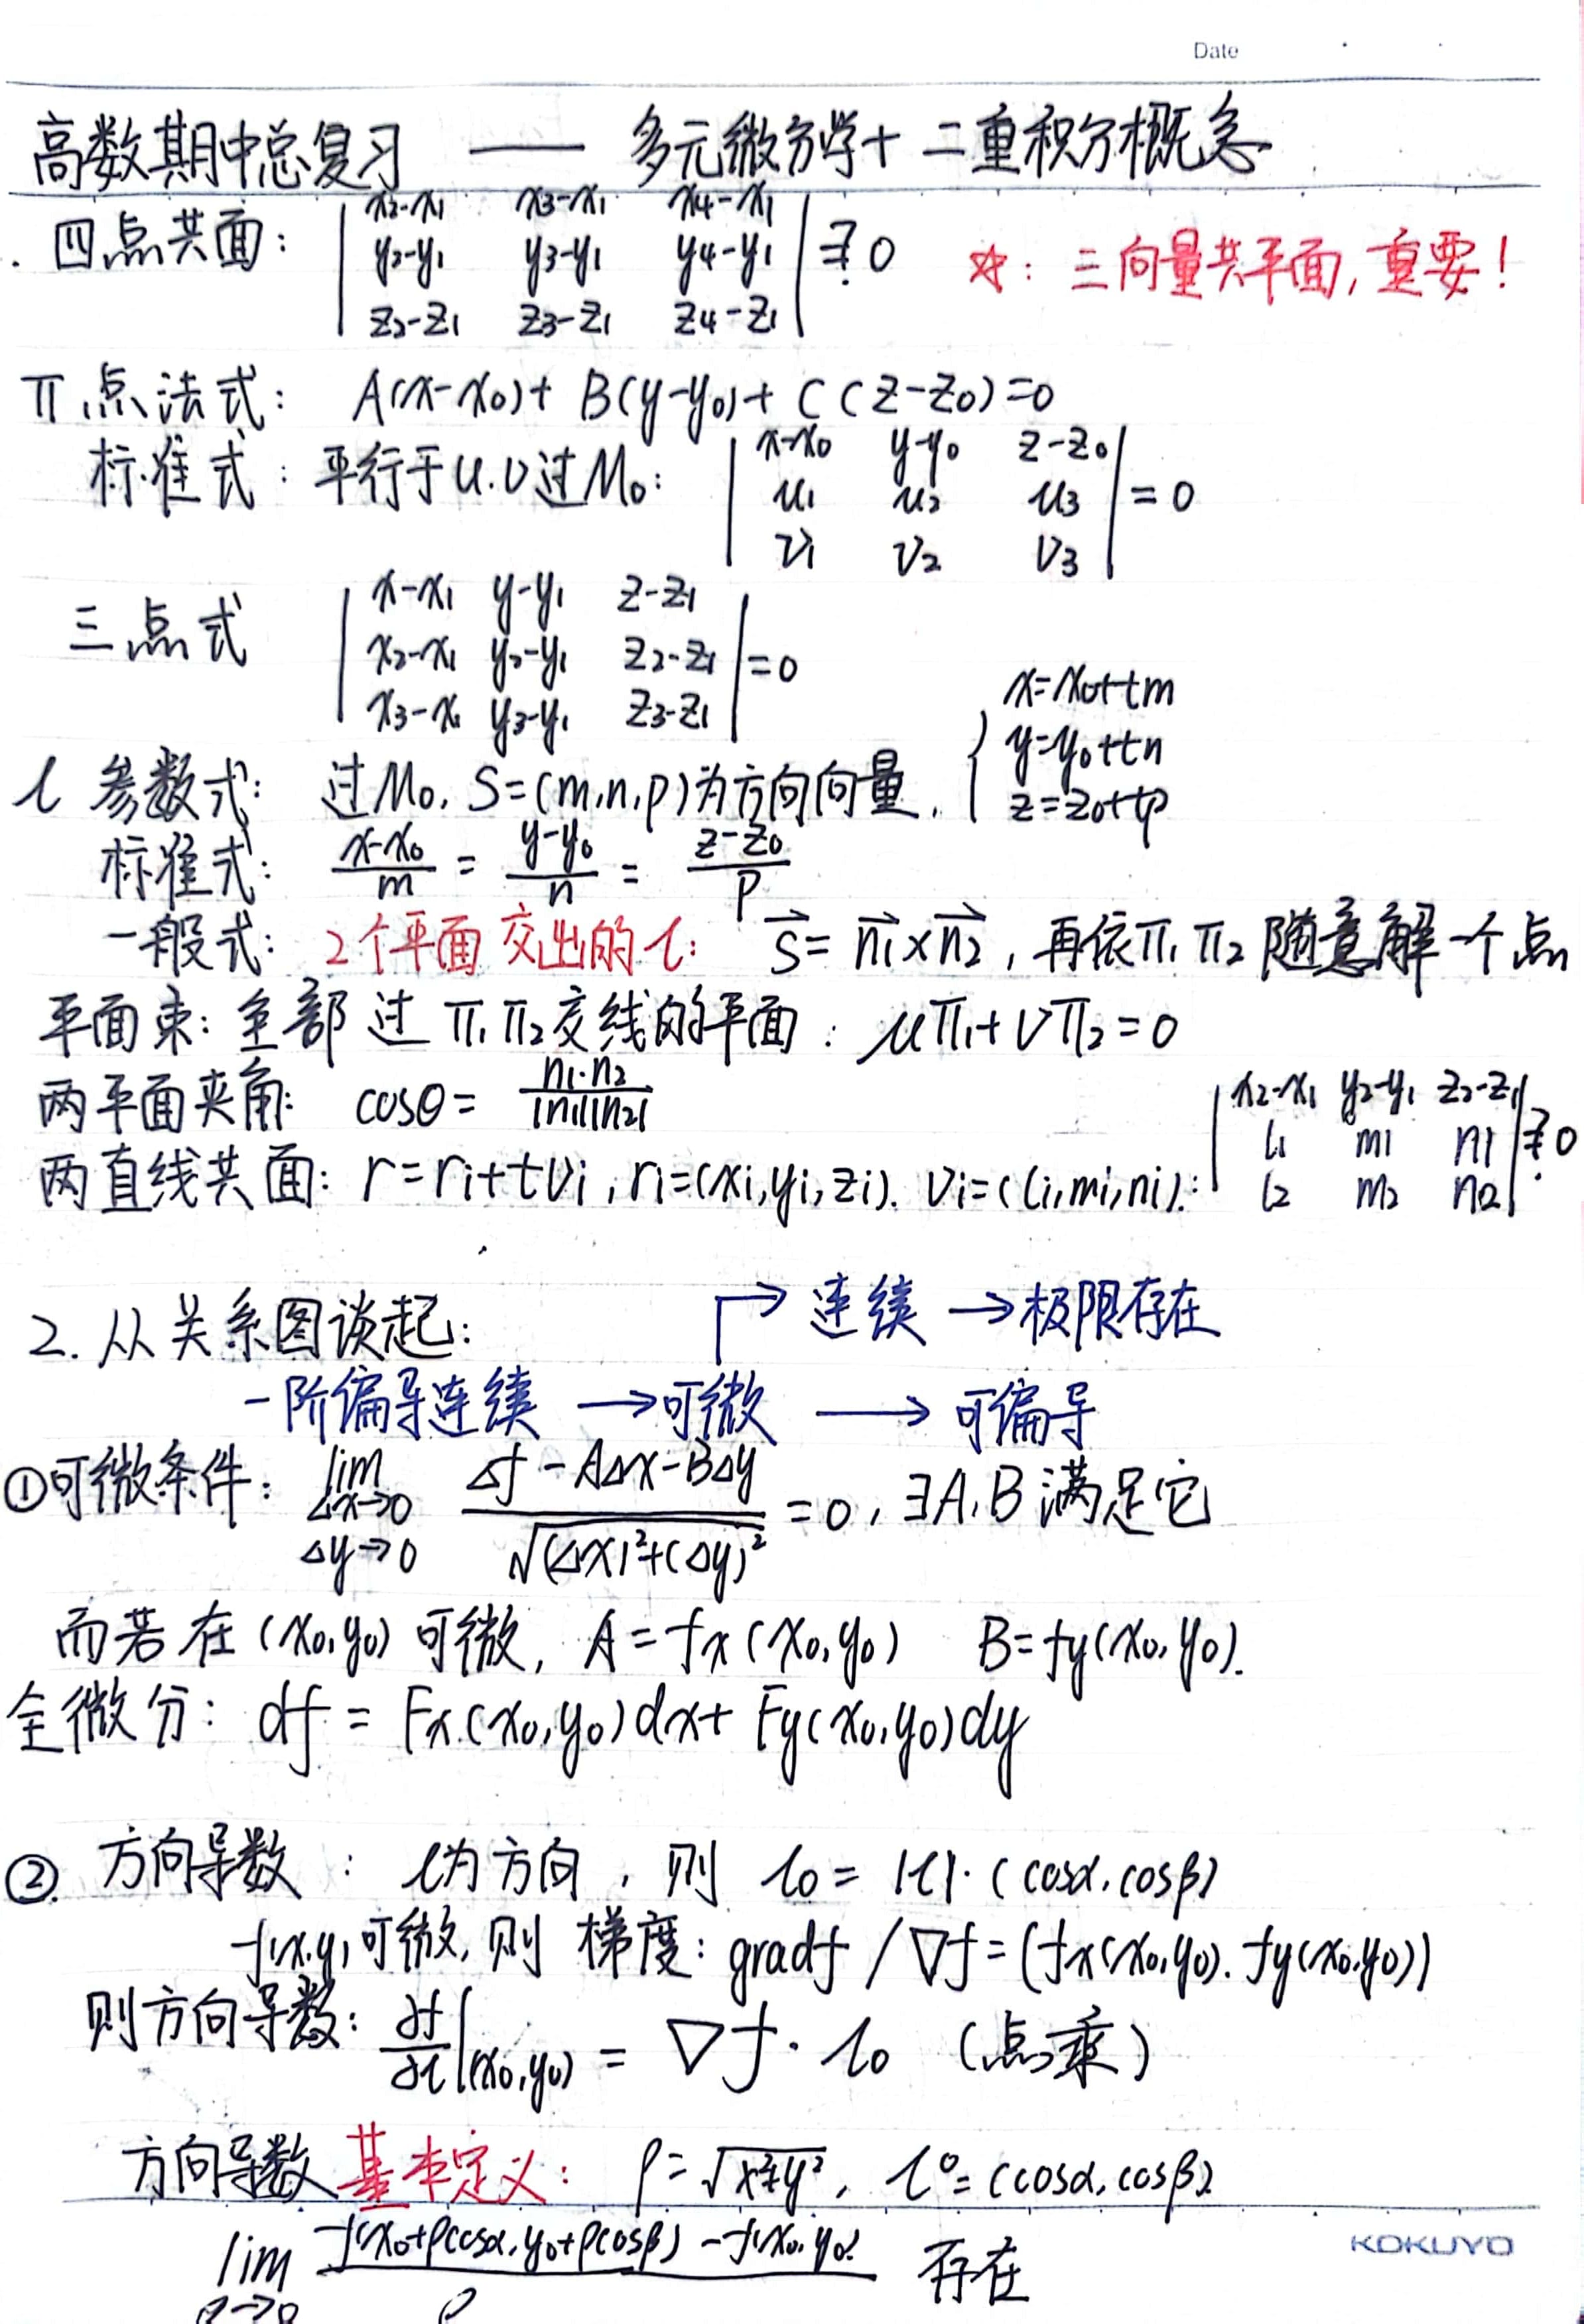 Date
高数期中总复习 —— 多元微分学+二重积分概念
. 四点共面: | x2-x1 x3-x1 x4-x1 |
| y2-y1 y3-y1 y4-y1 | ≟ 0 ☆: 三向量共平面,重要!
| z2-z1 z3-z1 z4-z1 |
π 点法式: A(x-x0)+B(y-y0)+C(z-z0)=0
标准式: 平行于u.v过M0: | x-x0 y-y0 z-z0 |
| u1 u2 u3 | = 0
| v1 v2 v3 |
三点式 | x-x1 y-y1 z-z1 |
| x2-x1 y2-y1 z2-z1 | =0
| x3-x1 y3-y1 z3-z1 |
l 参数式: 过M0, S=(m,n,p)为方向向量, { x=x0+tm
y=y0+tn
z=z0+tp
标准式: (x-x0)/m = (y-y0)/n = (z-z0)/p
一般式: 2个平面交出的l: s→ = n1→×n2→, 再依π1 π2 随意解一个点
平面束: 全部过π1 π2交线的平面: μπ1+νπ2=0
两平面夹角: cosθ= n1·n2/|n1||n2|
两直线共面: r=ri+tvi, ri=(xi,yi,zi). vi=(li,mi,ni): | x2-x1 y2-y1 z2-z1 |
| l1 m1 n1 | ≟ 0
| l2 m2 n2 |
2. 从关系图谈起: ↱ 连续 → 极限存在
一阶偏导连续 → 可微 → 可偏导
①可微条件: lim Δx→0 Δy→0 (Δf-AΔx-BΔy)/√((Δx)²+(Δy)²) = 0, ∃A,B满足它
而若在(x0,y0)可微, A=fx(x0,y0) B=fy(x0,y0).
全微分: df = Fx(x0,y0)dx+Fy(x0,y0)dy
②. 方向导数: l为方向, 则 l0= |l|·(cosα,cosβ)
f(x,y)可微, 则 梯度: gradf / ∇f=(fx(x0,y0). fy(x0,y0))
则方向导数: ∂f/∂l|(x0,y0) = ∇f· l0 (点乘)
方向导数基本定义: ρ=√x²+y², l°=(cosα,cosβ)
lim ρ→0 (f(x0+ρcosα,y0+ρcosβ)-f(x0,y0))/ρ 存在
KOKUYO